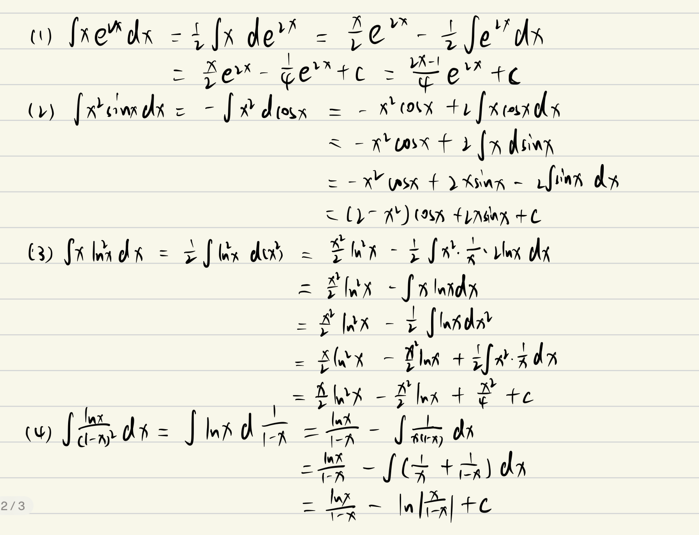 (1) ∫xe^{2x}dx = 1/2 ∫x de^{2x} = x/2 e^{2x} - 1/2 ∫e^{2x}dx
= x/2 e^{2x} - 1/4 e^{2x} + c = (2x-1)/4 e^{2x} + c
(2) ∫x² sinx dx = -∫x² dcosx = -x² cosx + 2∫xcosxdx
= -x² cosx + 2∫x dsinx
= -x² cosx + 2xsinx - 2∫sinx dx
= (2-x²)cosx + 2xsinx + c
(3) ∫x ln²x dx = 1/2 ∫ln²x d(x²) = x²/2 ln²x - 1/2 ∫x²·1/x·2lnx dx
= x²/2 ln²x - ∫x lnxdx
= x²/2 ln²x - 1/2 ∫lnxdx²
= x/2 ln²x - x²/2 lnx + 1/2 ∫x²·1/x dx
= x/2 ln²x - x²/2 lnx + x²/4 + c
(4) ∫lnx/(1-x)² dx = ∫lnx d 1/(1-x) = lnx/(1-x) - ∫1/(x(1-x)) dx
= lnx/(1-x) - ∫(1/x + 1/(1-x)) dx
= lnx/(1-x) - ln|x/(1-x)| + c
2/3